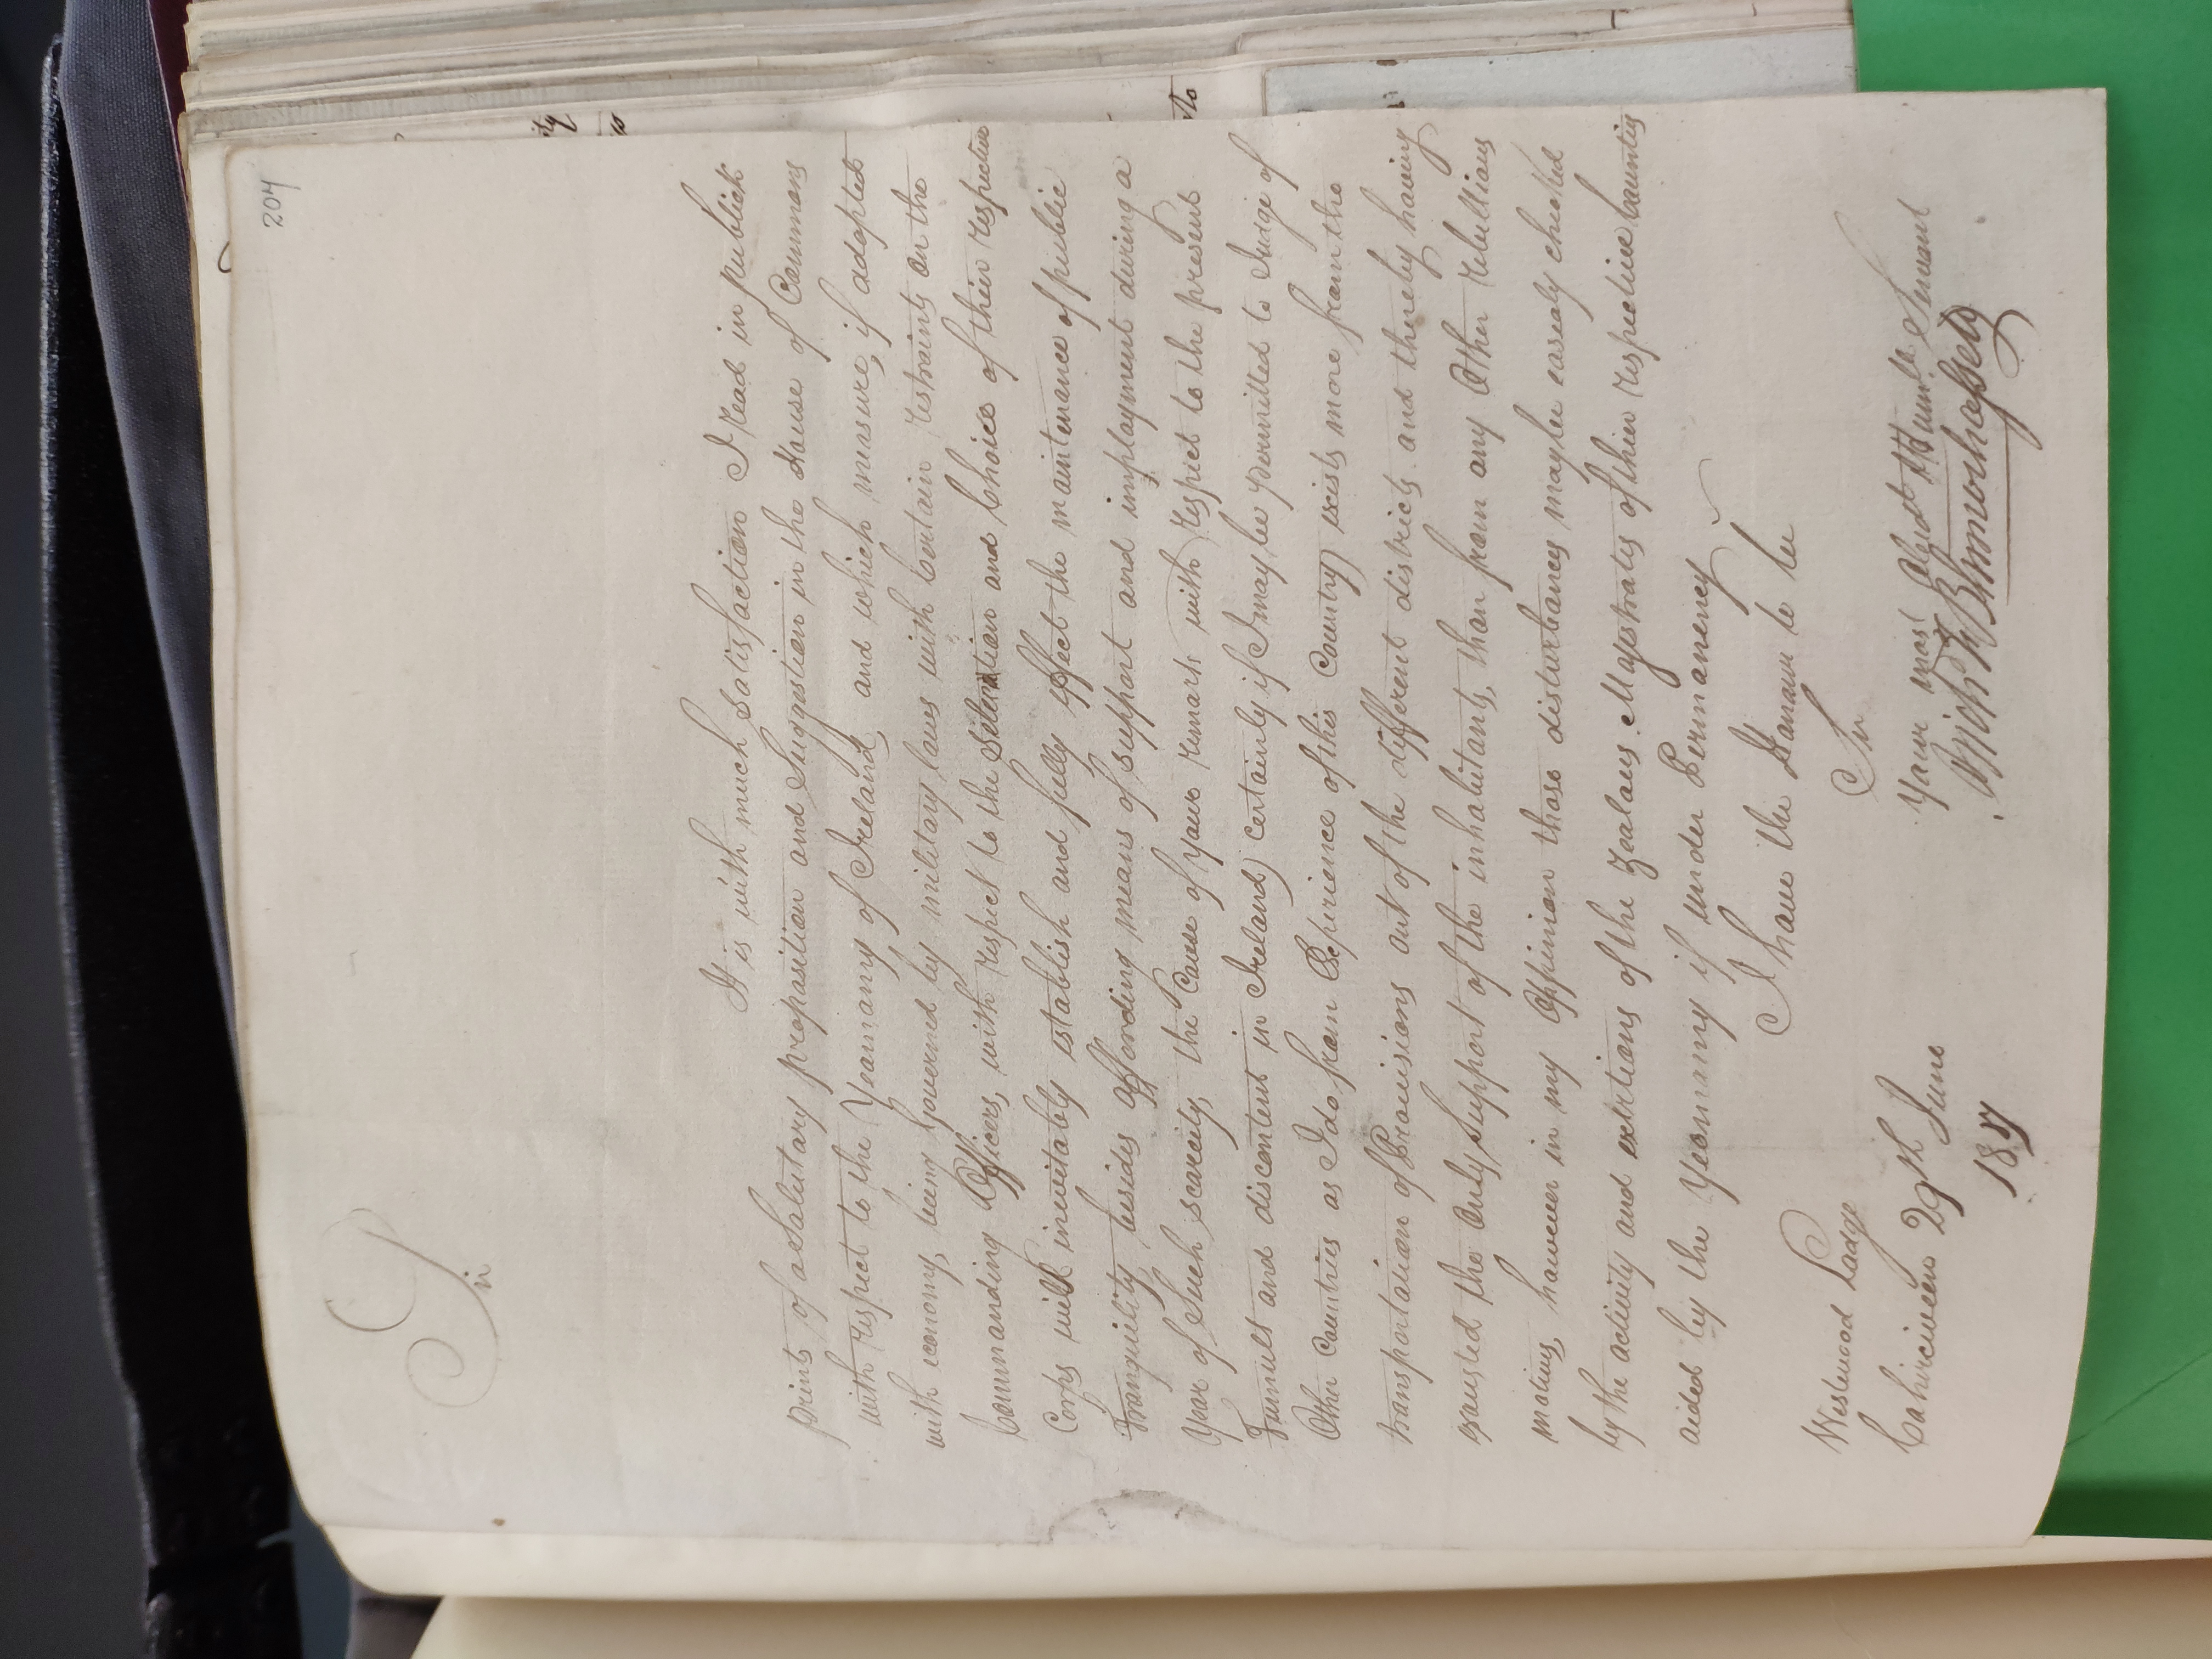 204
Sir
It is with much Satisfaction I read in publick
prints of a Salutary proposition and Suggestion in the House of Commons
with respect to the Yeomanry of Ireland, and which measure, if adopted
with economy, being governed by military laws with Certain restraints on the
Commanding Officers, with respect to the Selection and Choice of their respective
Corps will inevitably establish and fully effect the maintenance of public
tranquility besides affording means of support and imployment during a
Year of Such scarcity, the Cause of your remark with respect to the present
Tumult and discontent in Ireland) certainly if I may be permitted to Judge of
Other Countries as I do from Experience of this Country) exists more from the
transportation of Provisions out of the different districts and thereby having
exausted the Only Support of the inhabitants, than from any Other rebellious
motives, however in my Oppinion those disturbances may bee easealy checked
by the activity and exertions of the Zealous Magistrates of thier respective Countis
aided by the Yeomanry if under Permanency
I have the Honour to be
Sir
Your most Obedt Humle Servant
Westwood Lodge
Cahirciveen 29th June
1817